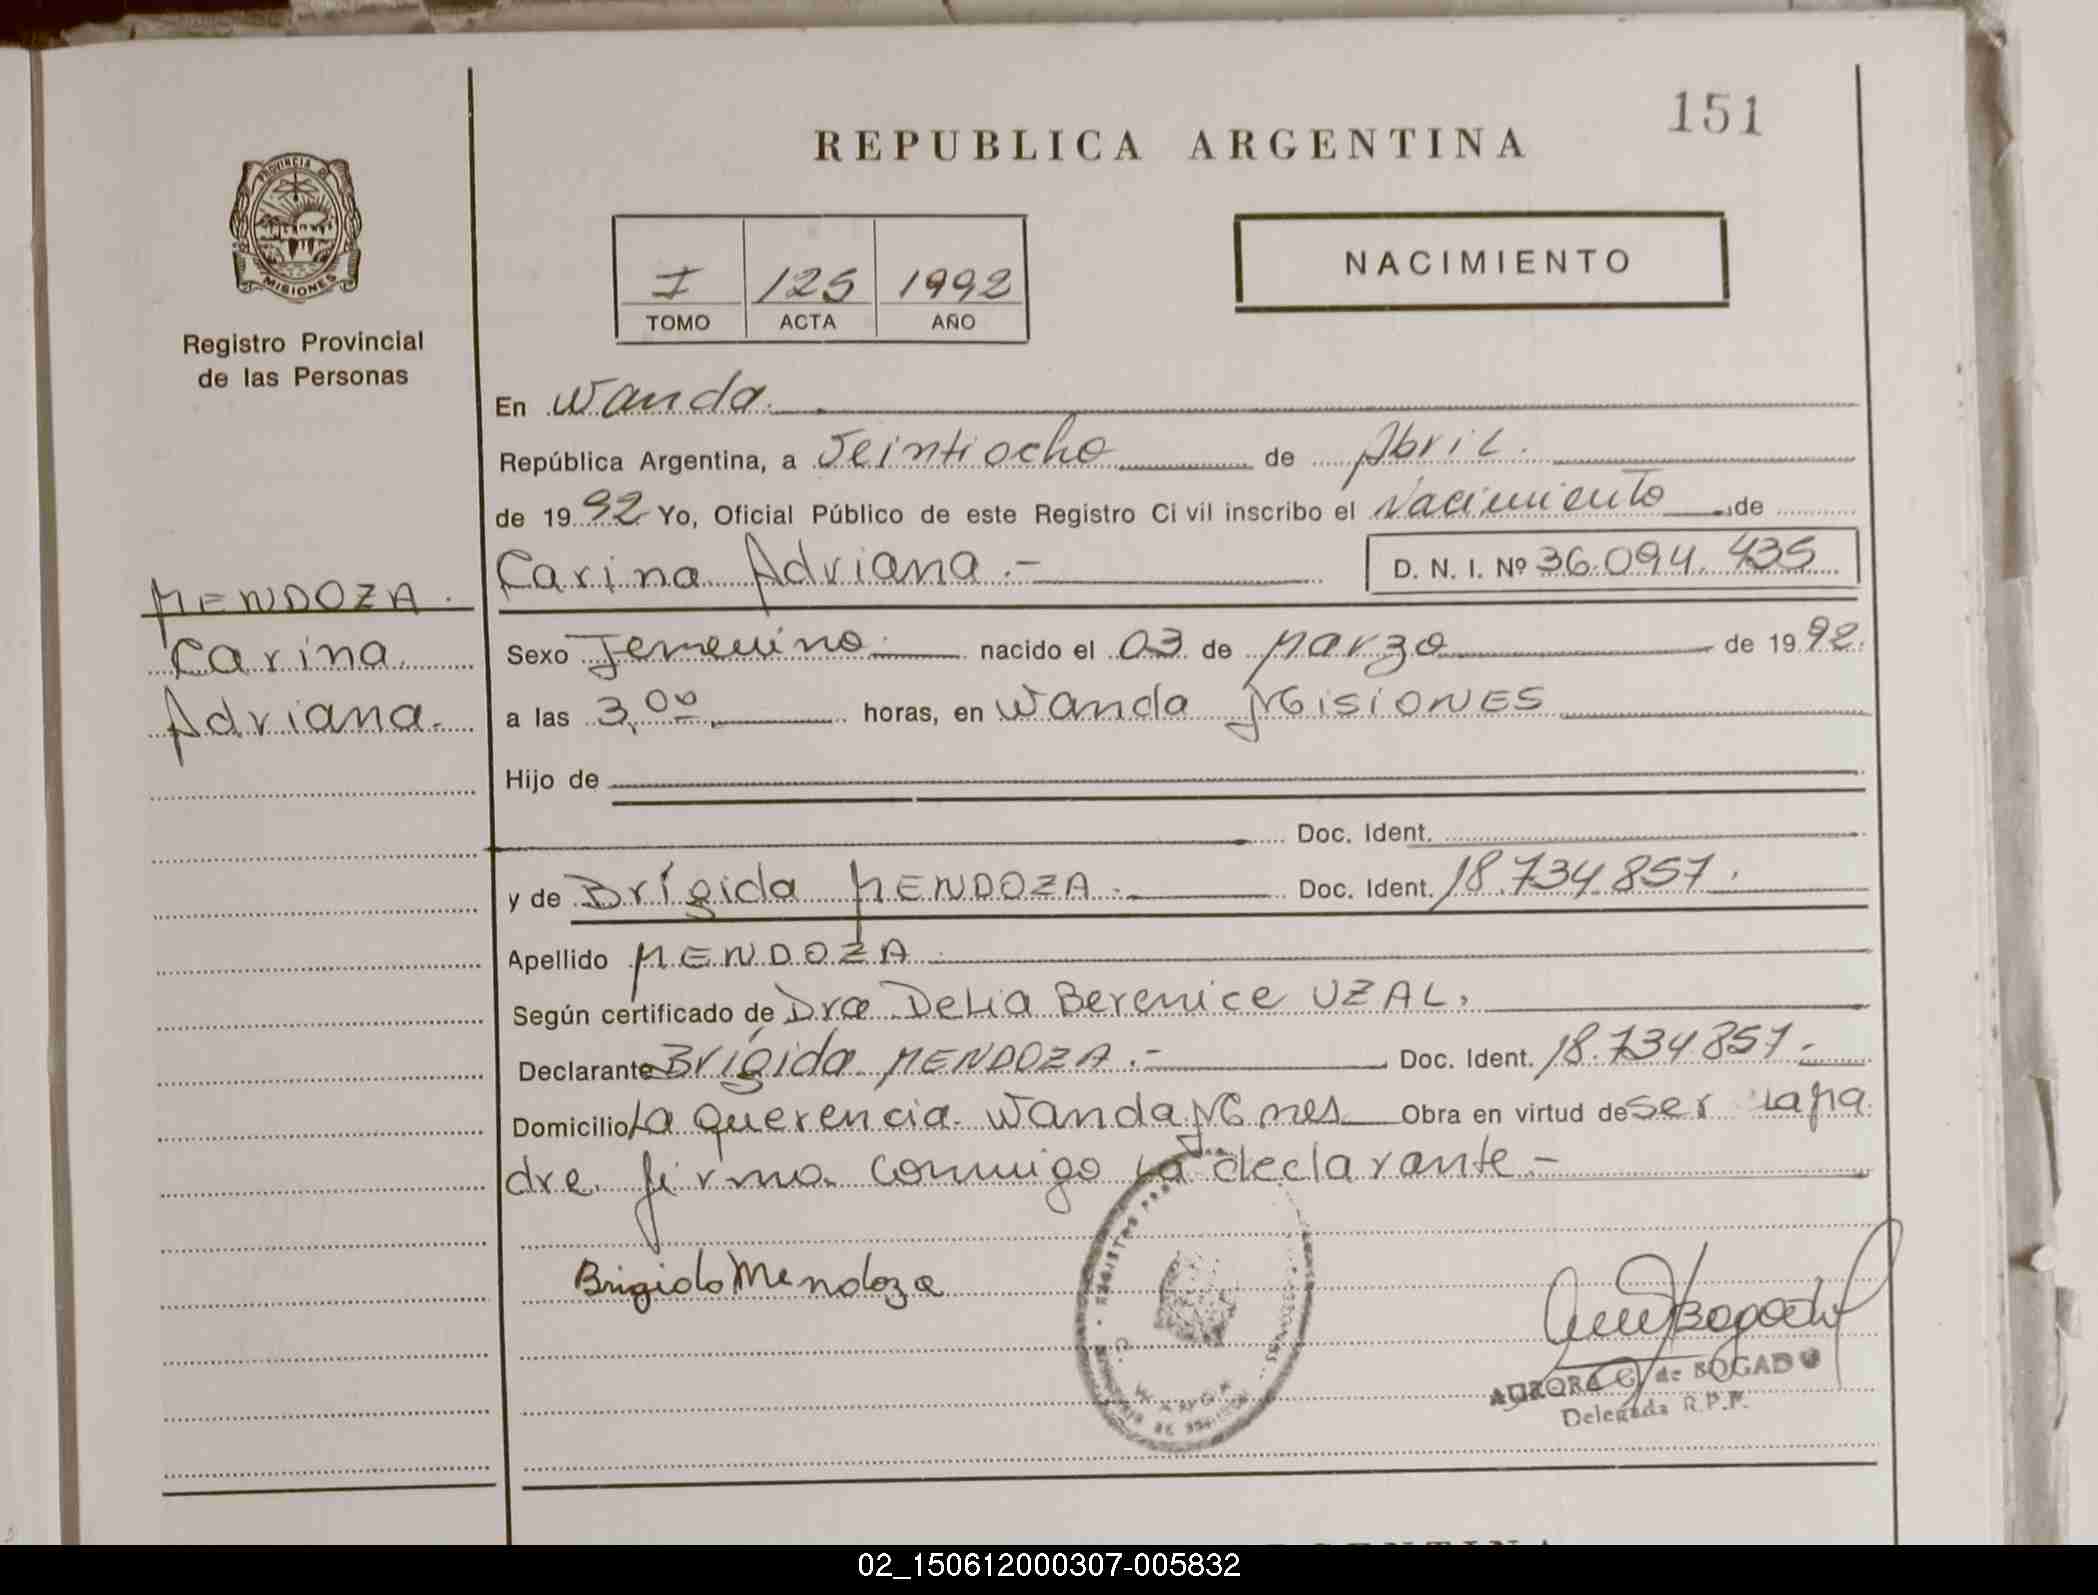 151
REPUBLICA ARGENTINA
PROVINCIA DE
MISIONES
Registro Provincial
de las Personas
I 125 1992
TOMO ACTA AÑO
NACIMIENTO
En Wanda.
República Argentina, a Veintiocho de Abril.
de 1992 Yo, Oficial Público de este Registro Civil inscribo el Nacimiento de
Carina Adriana.- D. N. I. Nº 36.094.435
MENDOZA.
Carina
Adriana.
Sexo Femenino. nacido el 03 de Marzo de 1992.
a las 3,00 horas, en Wanda Misiones
Hijo de
Doc. Ident.
y de Brígida MENDOZA.- Doc. Ident. 18.734.857.
Apellido MENDOZA
Según certificado de Dra Delia Berenice UZAL.
Declarante Brígida MENDOZA.- Doc. Ident. 18.734.857.-
Domicilio La Querencia. Wanda Mnes Obra en virtud de ser la Ma
dre. firma conmigo la declarante.-
Brigida Mendoza
WANDA
AURORA G. de BOGADO
Delegada R.P.P.
02_150612000307-005832